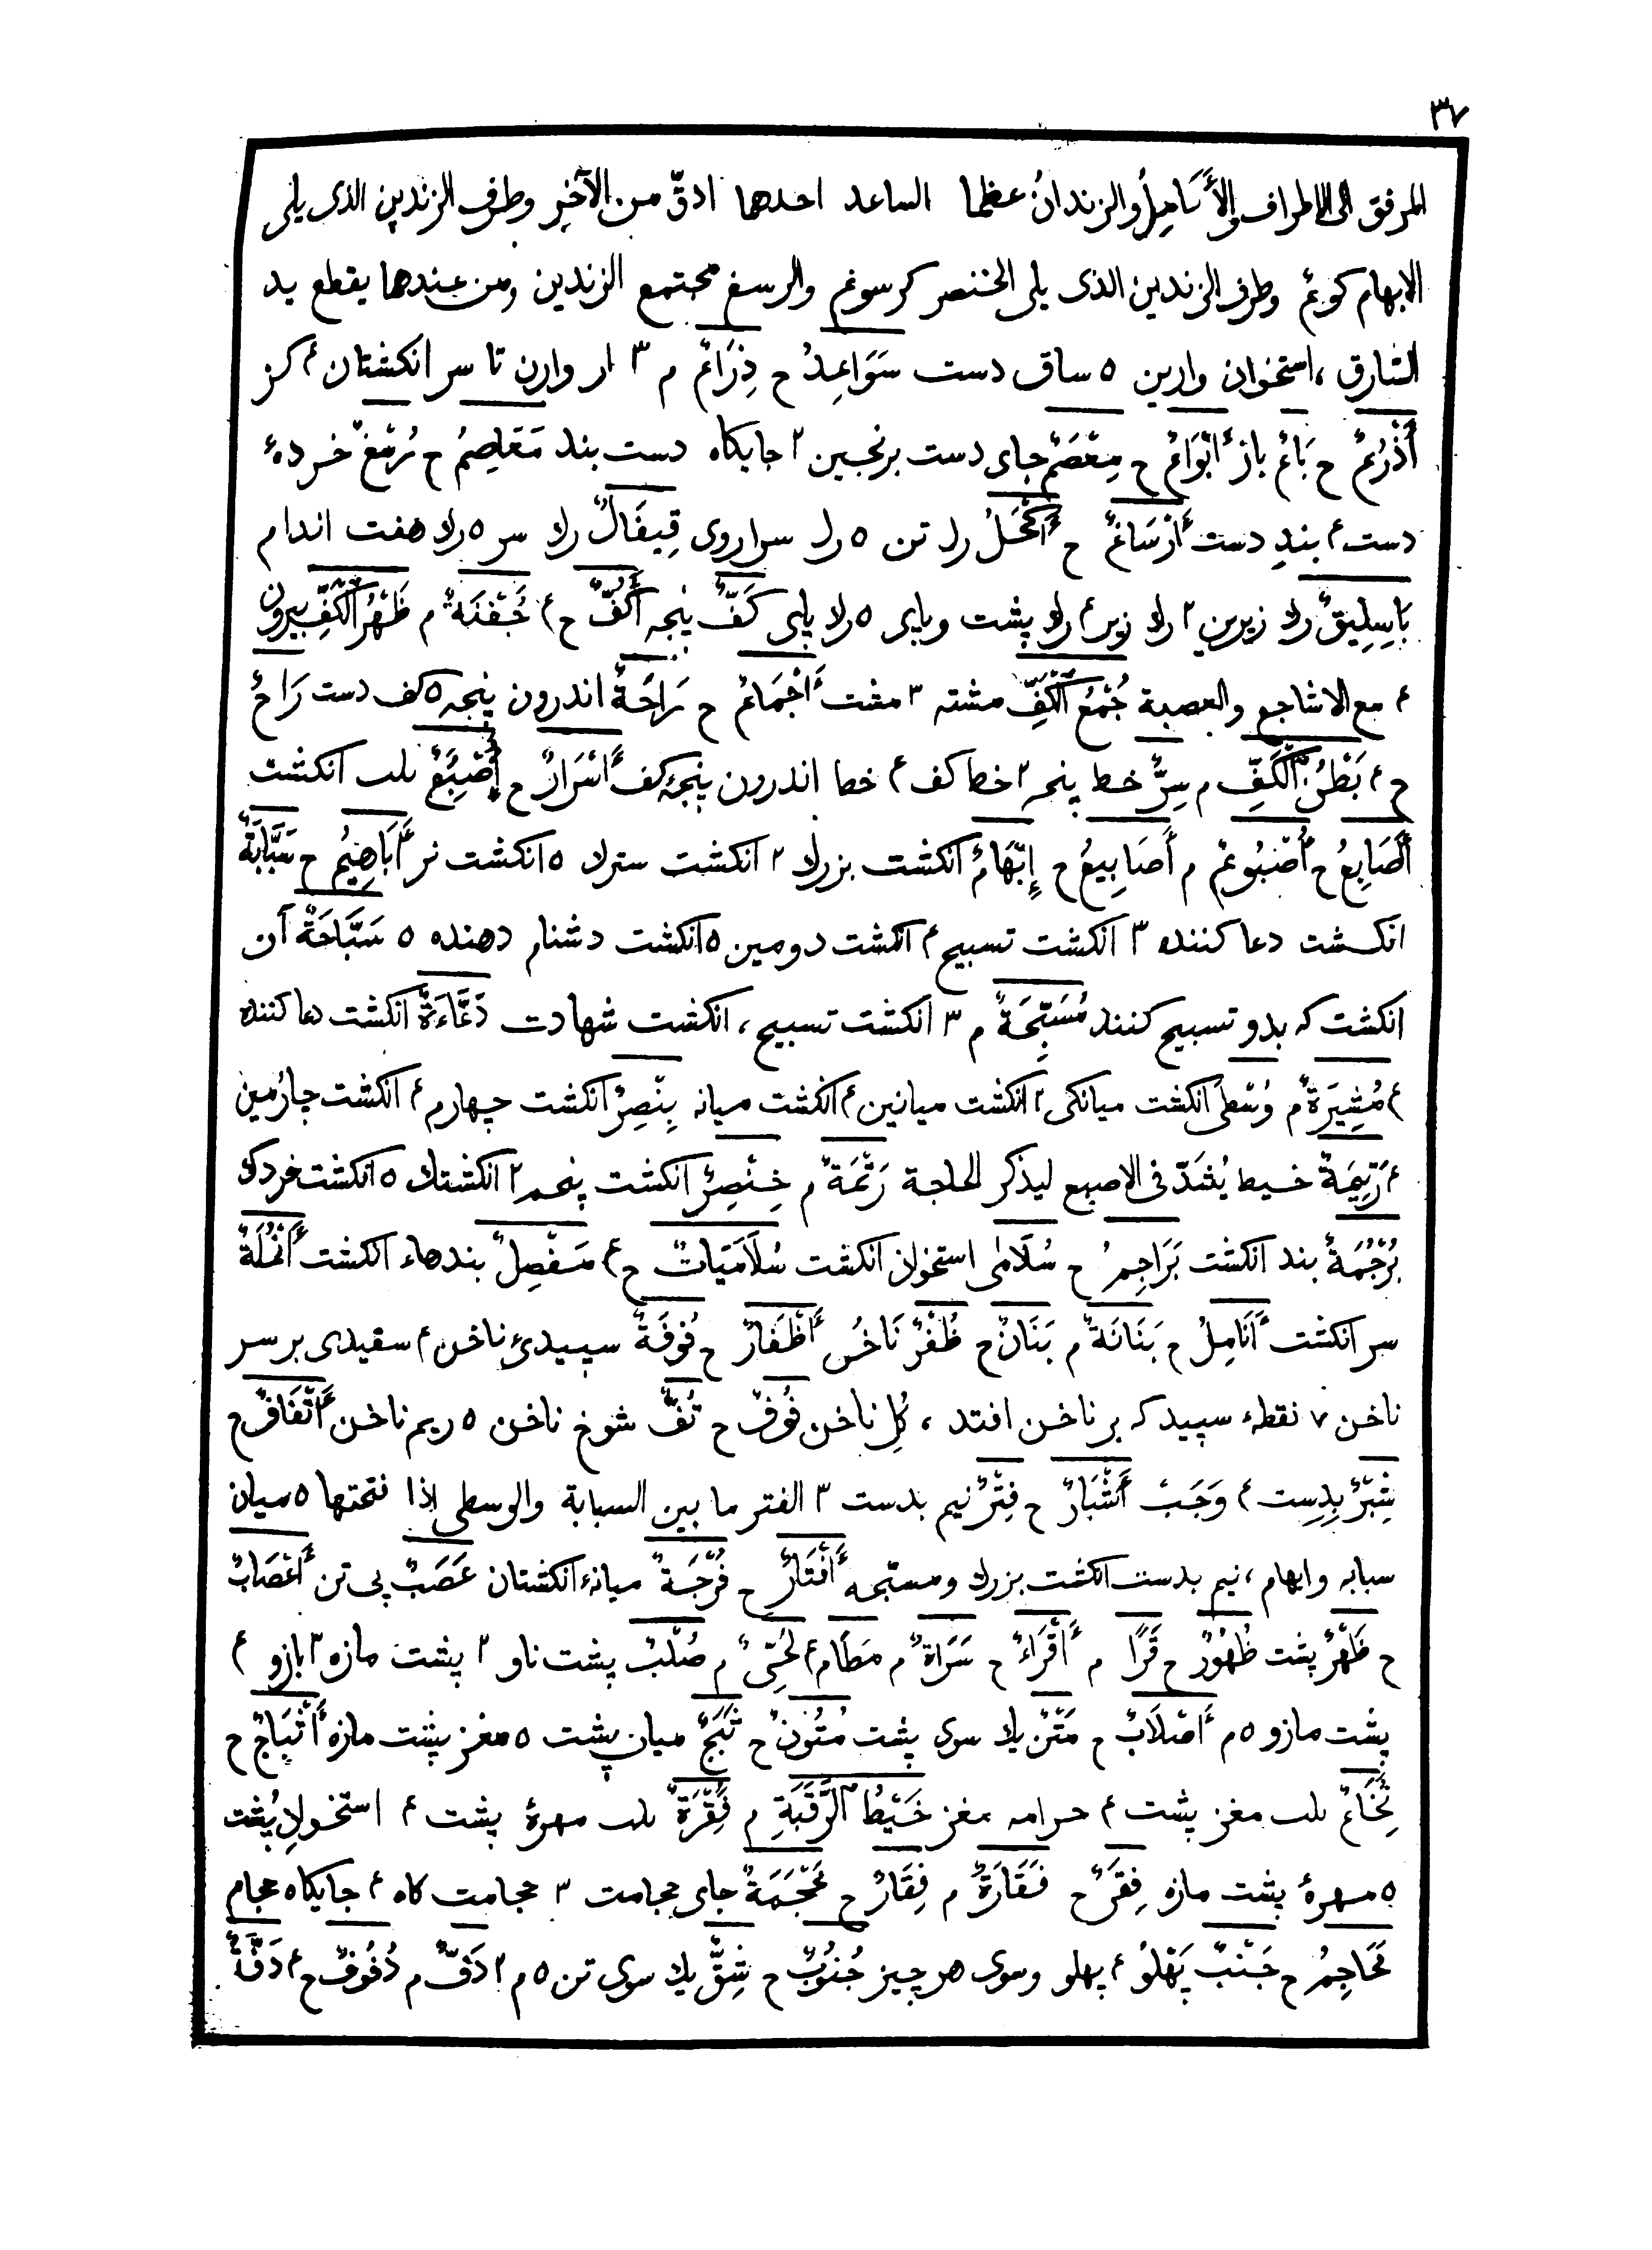 ٣٧
المرفق الى الاطراف والأَنَامِلُ والزندانُ عظما الساعد احدهما ادقّ من الآخرِ وطرف الزندين الذى يلى
الابهام كوعٌ وطرف الزندين الذى يلى الخنصر كرسوعٌ والرسغ مجتمع الزندين ومن عندهما يقطع يد
السّارق ، استخوان وارين ٥ ساق دست سَوَاعِدُ ح ذِرَاعٌ م ٣ ار وارن تا سر انكشتان ٤ كز
أَذْرُعٌ ح بَاعٌ باز أَبْوَاعٌ ح مِعْصَمٌ جاى دست برنجين ٢ جايكاه دست بند مَعَاصِمُ ح رُسْغٌ خردهٔ
دست ٤ بندِ دست أَرْسَاغٌ ح أَكْحَلُ رك تن ٥ رك سراروى قِيفَالٌ رك سر ٥ رك هفت اندام
بَاسِلِيقٌ رك زيرين ٢ رك زير ٤ رك پشت وپاى ٥ رك پاى كَفٌّ پنجه أَكُفٌّ ح ٤ حَفْنَةٌ م ظَهْرُ الْكَفِّ بيرون
٤ مع الاشاجع والعصبة جُمْعُ الْكَفِّ مشته ٣ مشت أَجْمَاعٌ ح رَاحَةٌ اندرون پنجه ٥ كف دست رَاحٌ
ح ٤ بَطْنُ الْكَفِّ م سِرٌّ خط پنجه ٢ خط كف ٤ خط اندرون پنجهٔ كف أَسْرَارٌ ح إِصْبَعٌ يك انكشت
أَصَابِعُ ح أُصْبُوعٌ م أَصَابِيعُ ح إِبْهَامٌ انكشت بزرك ٢ انكشت سترك ٥ انكشت نر أَبَاهِيمُ ح سَبَّابَةٌ
انكشت دعا كننده ٣ انكشت تسبيح ٤ انكشت دومين ٥ انكشت دشنام دهنده ٥ سَبَّاحَةٌ آن
انكشت كه بدو تسبيح كنند مُسَبِّحَةٌ م ٣ انكشت تسبيح ، انكشت شهادت دَعَّاءَةٌ انكشت دعا كننده
٤ مُشِيرَةٌ م وُسْطَى انكشت ميانكى ٢ انكشت ميانين ٤ انكشت ميانه بِنْصِرٌ انكشت چهارم ٤ انكشت چارُمين
٤ رَتِيمَةٌ خيط يُشَدّ فى الاصبع ليذكر الحاجة رَتْمَةٌ م خِنْصِرٌ انكشت پنجم ٢ انكشتك ٥ انكشت خردك
بُرْجُمَةٌ بند انكشت بَرَاجِمُ ح سُلَامٰى استخوان انكشت سُلَامَيَاتٌ ح ٤ مَفْصِلٌ بندهاء انكشت أَنْمُلَةٌ
سر انكشت أَنَامِلُ ح بَنَانَةٌ م بَنَانٌ ح ظُفْرٌ نَاخُن أَظْفَارٌ ح فُوفَةٌ سپيدئ ناخن ٤ سفيدى بر سر
ناخن ٧ نقطهٔ سپيد كه بر ناخن افتد ، كُلِ ناخن فُوفٌ ح تُفٌّ شوخ ناخن ٥ ريم ناخن أَتْفَافٌ ح
شِبْرٌ بِدِست ٤ وَجَبْ أَشْبَارٌ ح فِتْرٌ نيم بدست ٣ الفتر ما بين السبابة والوسطى إذا فتحتها ٥ ميان
سبابه وابهام ، نيم بدست انكشت بزرك ومسبّحه أَفْتَارٌ ح فُرْجَةٌ ميانهٔ انكشتان عَصَبٌ پى تن أَعْصَابٌ
ح ظَهْرٌ پشت ظُهُورٌ ح قَرًا م أَقْرَاءٌ ح سَرَاةٌ م مَطًا م ٤ م صُلْبٌ پشت ناو ٢ پشت مازه ٣ بازو ٤
پشت مازو ٥ م أَصْلَابٌ ح مَتْنٌ يك سوى پشت مُتُونٌ ح ثَبَجٌ ميان پشت ٥ مغز پشت مازه أَثْبَاجٌ ح
نُخَاعٌ يك مغز پشت ٤ حرامه مغز خَيْطُ الرَّقَبَةِ م فِقْرَةٌ يك مهرهٔ پشت ٤ استخوان پُشت
٥ مهرهٔ پشت مازه فِقَرٌ ح فَقَارَةٌ م فِقَارٌ ح مَحْجَمَةٌ جاى حجامت ٣ حجامت كاه ٤ جايكاه حجام
مَحَاجِمُ ح جَنْبٌ پَهْلُو ٤ پهلو وسوى هر چيز جُنُوبٌ ح شِقٌّ يك سوى تن ٥ م ٢ دَفٌّ م دُفُوفٌ ح ٤ دَفَّةٌ